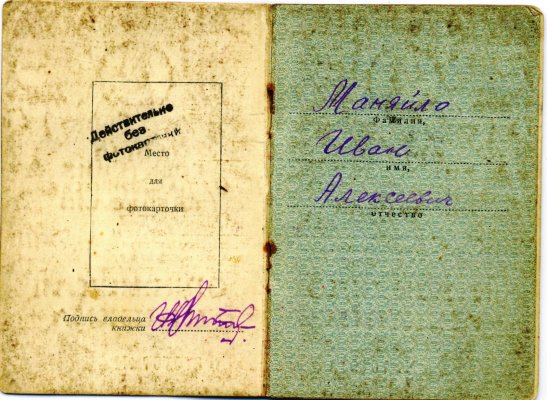 Действительно
без
фотокарточки
Место
для
фотокарточки
Подпись владельца
книжки
Маняйло
фамилия,
Иван
имя,
Алексеевич
отчество